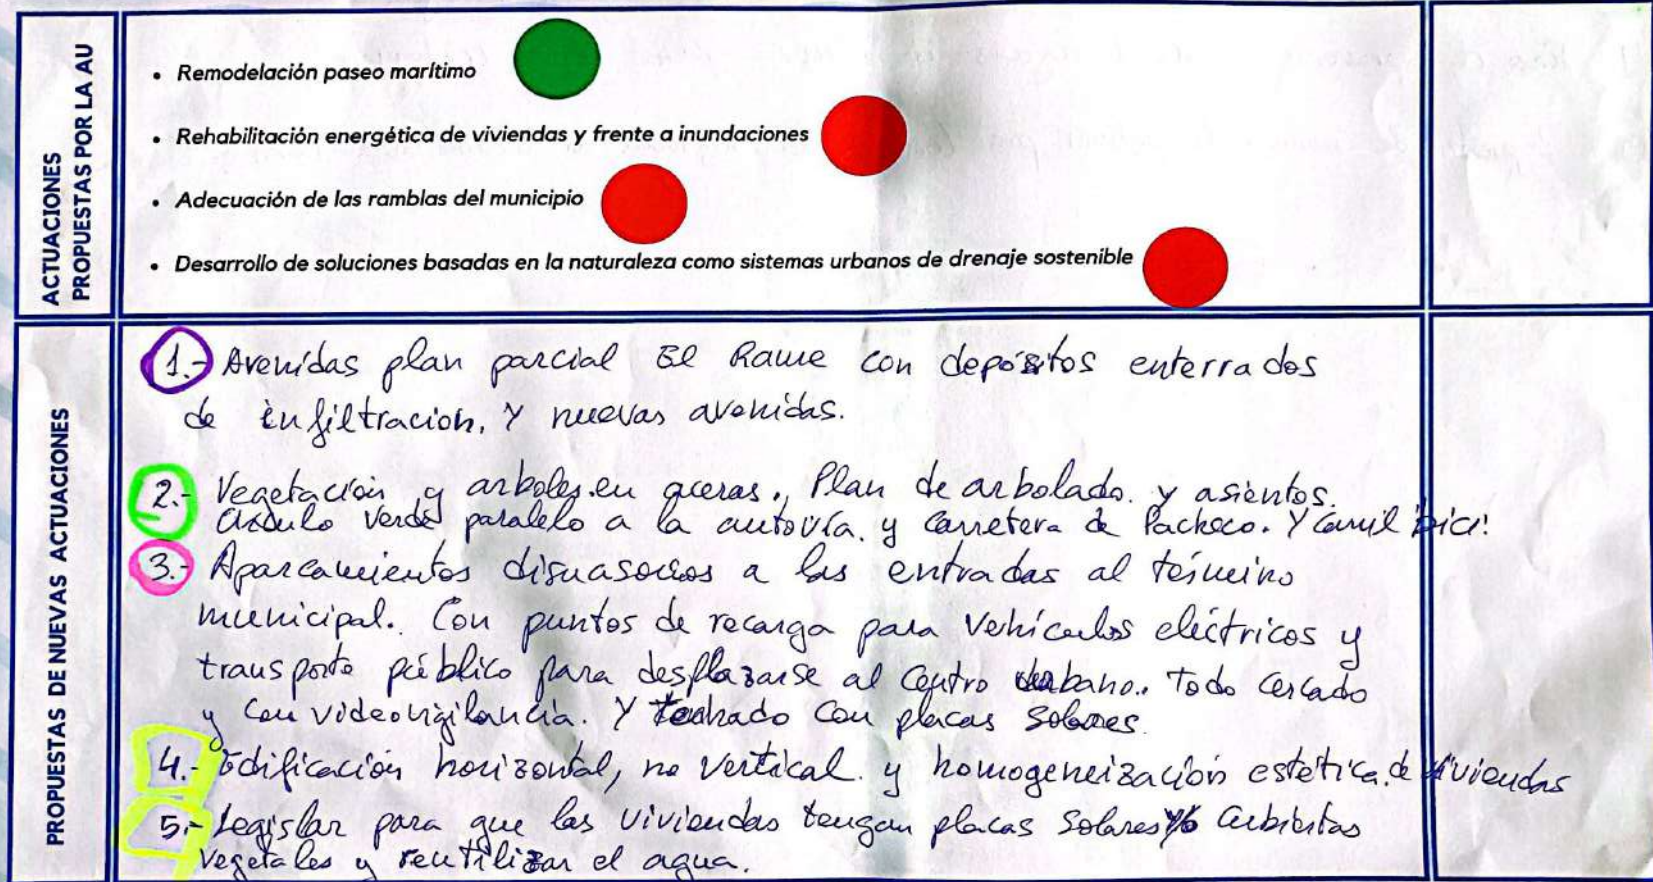 ACTUACIONES
PROPUESTAS POR LA AU
• Remodelación paseo marítimo
• Rehabilitación energética de viviendas y frente a inundaciones
• Adecuación de las ramblas del municipio
• Desarrollo de soluciones basadas en la naturaleza como sistemas urbanos de drenaje sostenible
PROPUESTAS DE NUEVAS ACTUACIONES
1.- Avenidas plan parcial El Rame con depósitos enterrados
de infiltración, y nuevas avenidas.
2.- Vegetación y arboles en aceras., Plan de arbolado. y asientos.
verde paralelo a la autovía. y carretera de Pacheco. Y carril bici!
3.- Aparcamientos disuasorios a las entradas al término
municipal. Con puntos de recarga para vehículos eléctricos y
transporte público para desplazarse al centro urbano. Todo cercado
y con videovigilancia. Y techado con placas solares.
4.- Edificación horizontal, no vertical. y homogeneización estética de viviendas
5.- Legislar para que las viviendas tengan placas solares y/o cubiertas
vegetales y reutilizar el agua.